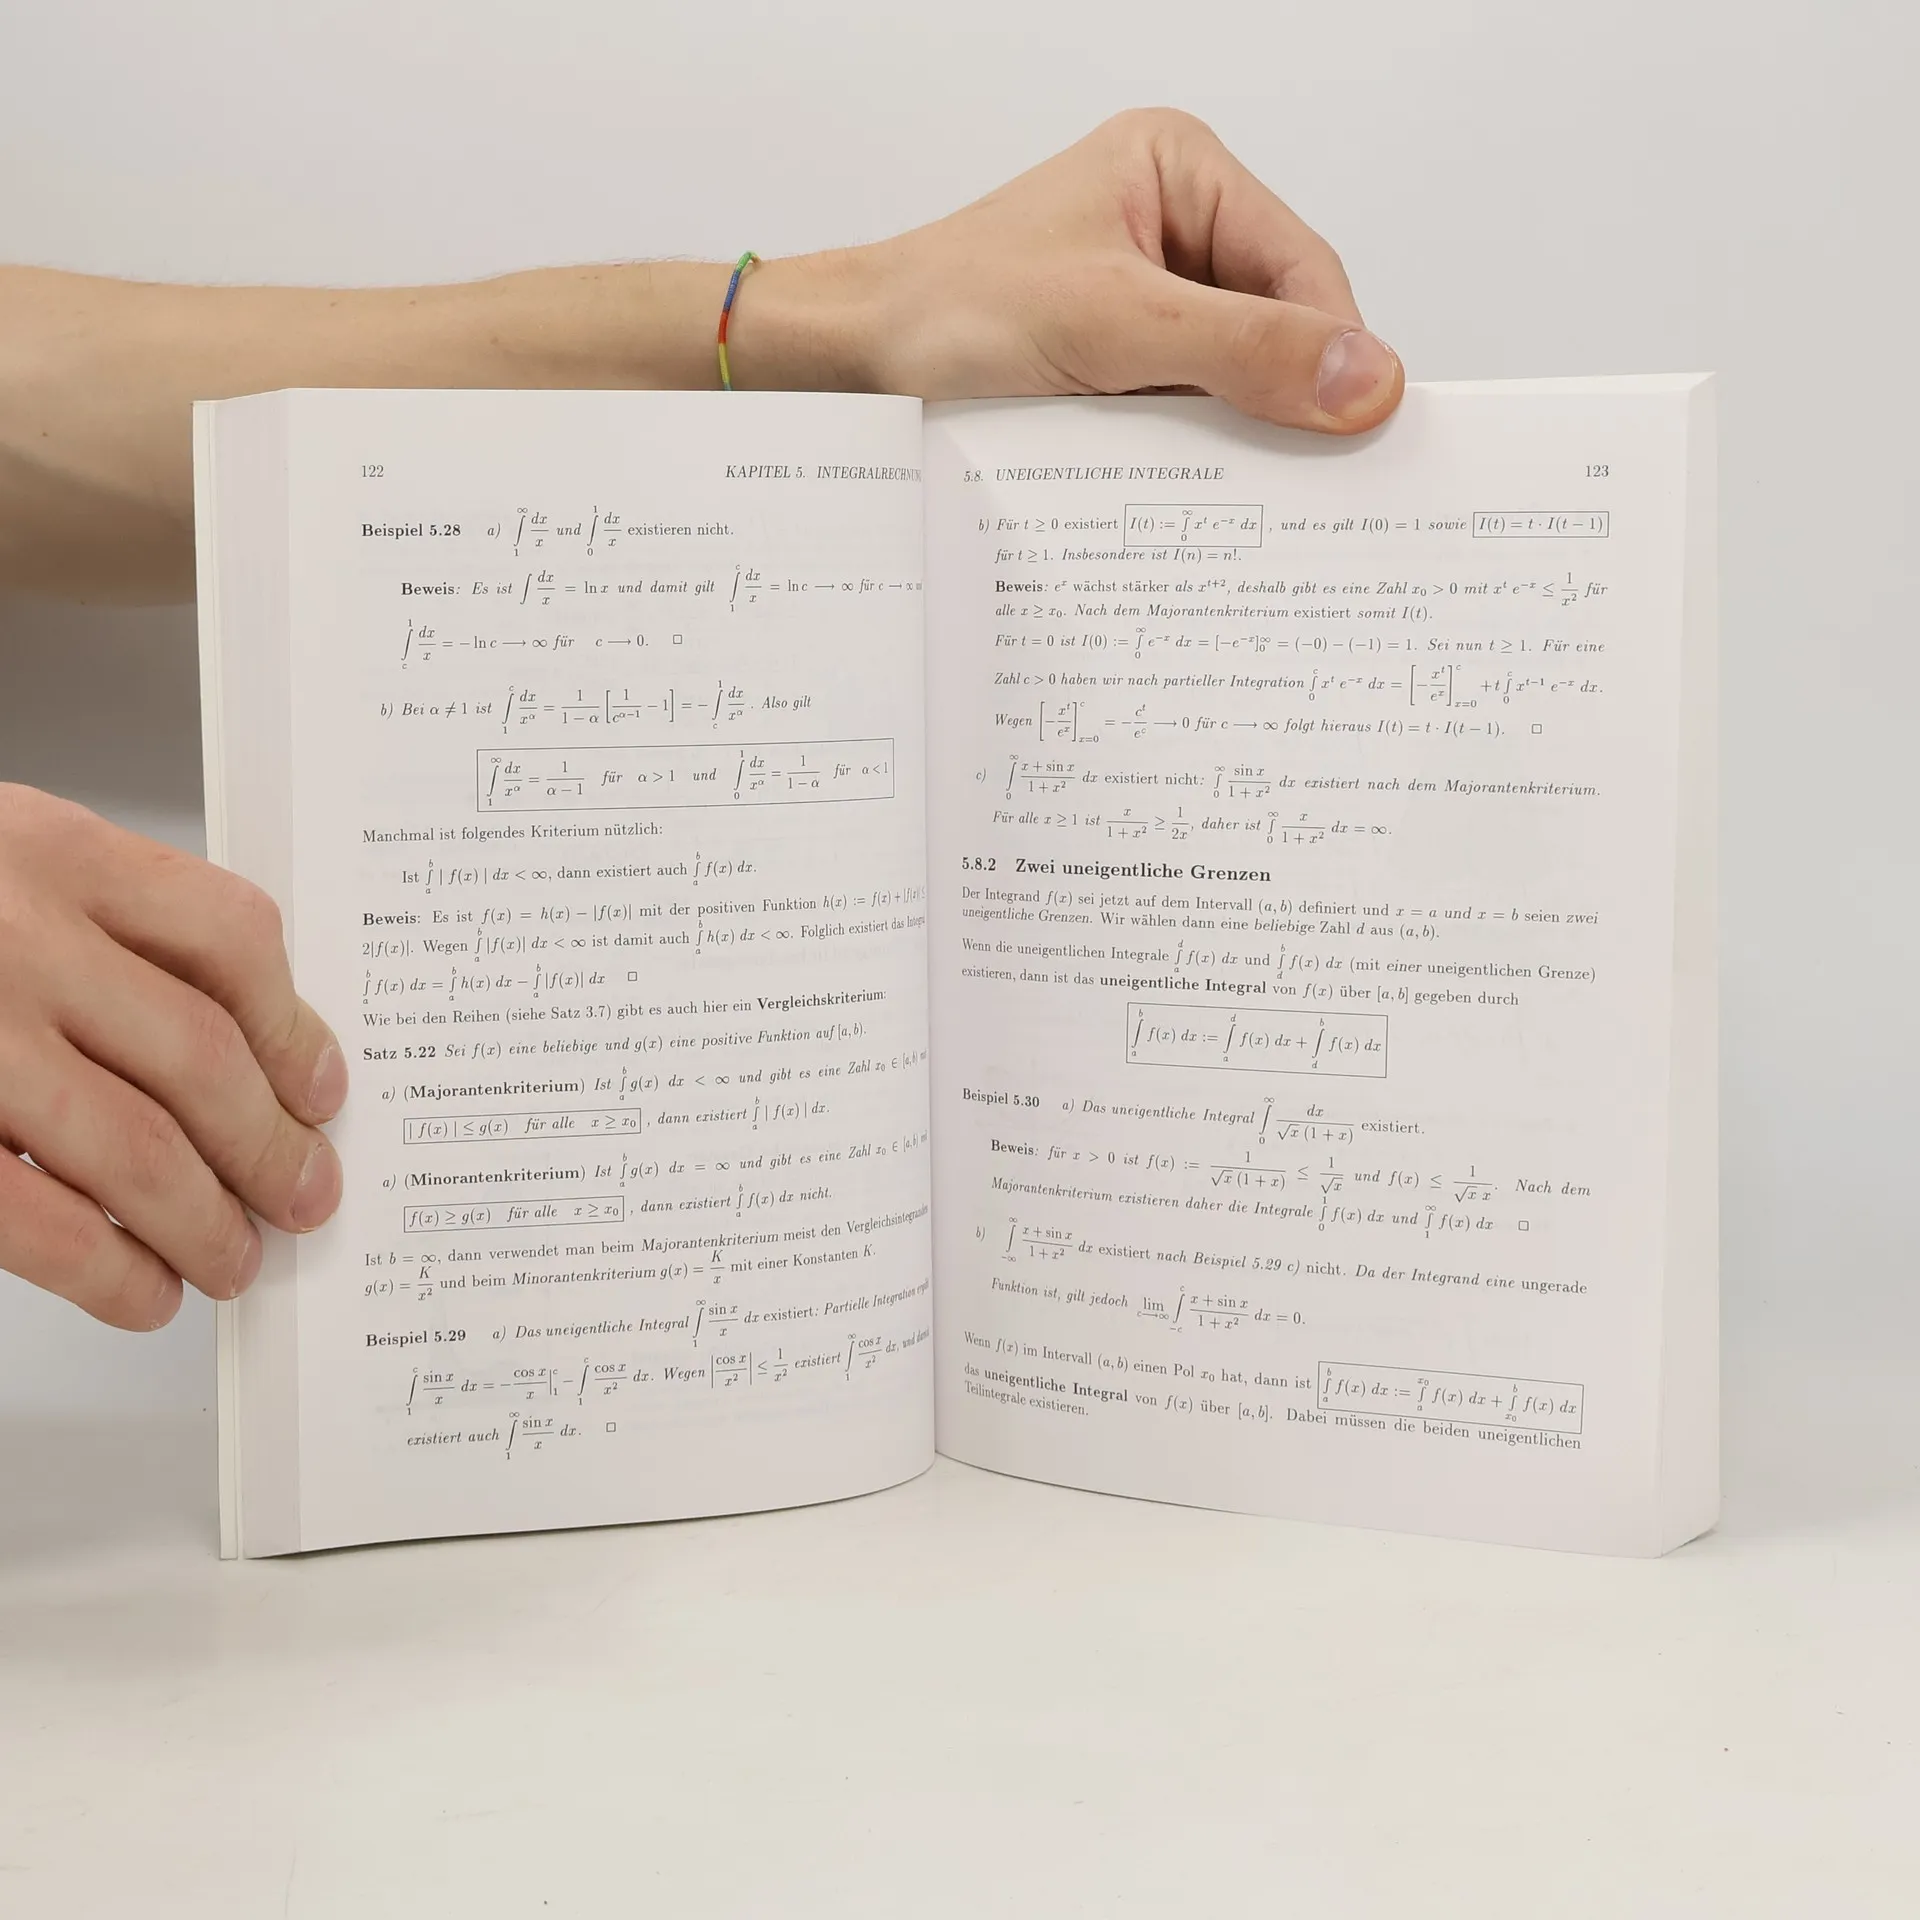 122 KAPITEL 5. INTEGRALRECHNUNG
Beispiel 5.28 a) ∫_1^∞ dx/x und ∫_0^1 dx/x existieren nicht.
Beweis: Es ist ∫ dx/x = ln x und damit gilt ∫_1^c dx/x = ln c ⟶ ∞ für c → ∞
∫_c^1 dx/x = − ln c ⟶ ∞ für c ⟶ 0. □
b) Bei α ≠ 1 ist ∫_1^c dx/x^α = 1/(1 − α) [1/c^(α−1) − 1] = − ∫_c^1 dx/x^α. Also gilt
∫_1^∞ dx/x^α = 1/(α − 1) für α > 1 und ∫_0^1 dx/x^α = 1/(1 − α) für α < 1
Manchmal ist folgendes Kriterium nützlich:
Ist ∫_a^b | f(x) | dx < ∞, dann existiert auch ∫_a^b f(x) dx.
Beweis: Es ist f(x) = h(x) − |f(x)| mit der positiven Funktion h(x) := f(x) + |f(x)| ≤
2|f(x)|. Wegen ∫_a^b |f(x)| dx < ∞ ist damit auch ∫_a^b h(x) dx < ∞. Folglich existiert das
∫_a^b f(x) dx = ∫_a^b h(x) dx − ∫_a^b |f(x)| dx □
Wie bei den Reihen (siehe Satz 3.7) gibt es auch hier ein Vergleichskriterium:
Satz 5.22 Sei f(x) eine beliebige und g(x) eine positive Funktion auf [a, b).
a) (Majorantenkriterium) Ist ∫_a^b g(x) dx < ∞ und gibt es eine Zahl x₀ ∈ [a, b)
| f(x) | ≤ g(x) für alle x ≥ x₀ , dann existiert ∫_a^b | f(x) | dx.
a) (Minorantenkriterium) Ist ∫_a^b g(x) dx = ∞ und gibt es eine Zahl x₀ ∈ [a, b)
f(x) ≥ g(x) für alle x ≥ x₀ , dann existiert ∫_a^b f(x) dx nicht.
Ist b = ∞, dann verwendet man beim Majorantenkriterium meist den Vergleichsintegranden
g(x) = K/x² und beim Minorantenkriterium g(x) = K/x mit einer Konstanten K.
Beispiel 5.29 a) Das uneigentliche Integral ∫_1^∞ sin x/x dx existiert: Partielle Integration ergibt
∫_1^c sin x/x dx = − cos x/x |_1^c − ∫_1^c cos x/x² dx. Wegen |cos x/x²| ≤ 1/x² existiert ∫_1^∞ cos x/x² dx, und damit
existiert auch ∫_1^∞ sin x/x dx. □
5.8. UNEIGENTLICHE INTEGRALE 123
b) Für t ≥ 0 existiert I(t) := ∫_0^∞ x^t e^(−x) dx , und es gilt I(0) = 1 sowie I(t) = t · I(t − 1)
für t ≥ 1. Insbesondere ist I(n) = n!.
Beweis: e^x wächst stärker als x^(t+2), deshalb gibt es eine Zahl x₀ > 0 mit x^t e^(−x) ≤ 1/x² für
alle x ≥ x₀. Nach dem Majorantenkriterium existiert somit I(t).
Für t = 0 ist I(0) := ∫_0^∞ e^(−x) dx = [−e^(−x)]_0^∞ = (−0) − (−1) = 1. Sei nun t ≥ 1. Für eine
Zahl c > 0 haben wir nach partieller Integration ∫_0^c x^t e^(−x) dx = [− x^t/e^x]_(x=0)^c + t ∫_0^c x^(t−1) e^(−x) dx.
Wegen [− x^t/e^x]_(x=0)^c = − c^t/e^c ⟶ 0 für c ⟶ ∞ folgt hieraus I(t) = t · I(t − 1). □
c) ∫_0^∞ (x + sin x)/(1 + x²) dx existiert nicht: ∫_0^∞ sin x/(1 + x²) dx existiert nach dem Majorantenkriterium.
Für alle x ≥ 1 ist x/(1 + x²) ≥ 1/2x, daher ist ∫_0^∞ x/(1 + x²) dx = ∞.
5.8.2 Zwei uneigentliche Grenzen
Der Integrand f(x) sei jetzt auf dem Intervall (a, b) definiert und x = a und x = b seien zwei
uneigentliche Grenzen. Wir wählen dann eine beliebige Zahl d aus (a, b).
Wenn die uneigentlichen Integrale ∫_a^d f(x) dx und ∫_d^b f(x) dx (mit einer uneigentlichen Grenze)
existieren, dann ist das uneigentliche Integral von f(x) über [a, b] gegeben durch
∫_a^b f(x) dx := ∫_a^d f(x) dx + ∫_d^b f(x) dx
Beispiel 5.30 a) Das uneigentliche Integral ∫_0^∞ dx/(√x (1 + x)) existiert.
Beweis: für x > 0 ist f(x) := 1/(√x (1 + x)) ≤ 1/√x und f(x) ≤ 1/(√x x). Nach dem
Majorantenkriterium existieren daher die Integrale ∫_0^1 f(x) dx und ∫_1^∞ f(x) dx □
b) ∫_−∞^∞ (x + sin x)/(1 + x²) dx existiert nach Beispiel 5.29 c) nicht. Da der Integrand eine ungerade
Funktion ist, gilt jedoch lim_(c⟶∞) ∫_−c^c (x + sin x)/(1 + x²) dx = 0.
Wenn f(x) im Intervall (a, b) einen Pol x₀ hat, dann ist ∫_a^b f(x) dx := ∫_a^x₀ f(x) dx + ∫_x₀^b f(x) dx
das uneigentliche Integral von f(x) über [a, b]. Dabei müssen die beiden uneigentlichen
Teilintegrale existieren.